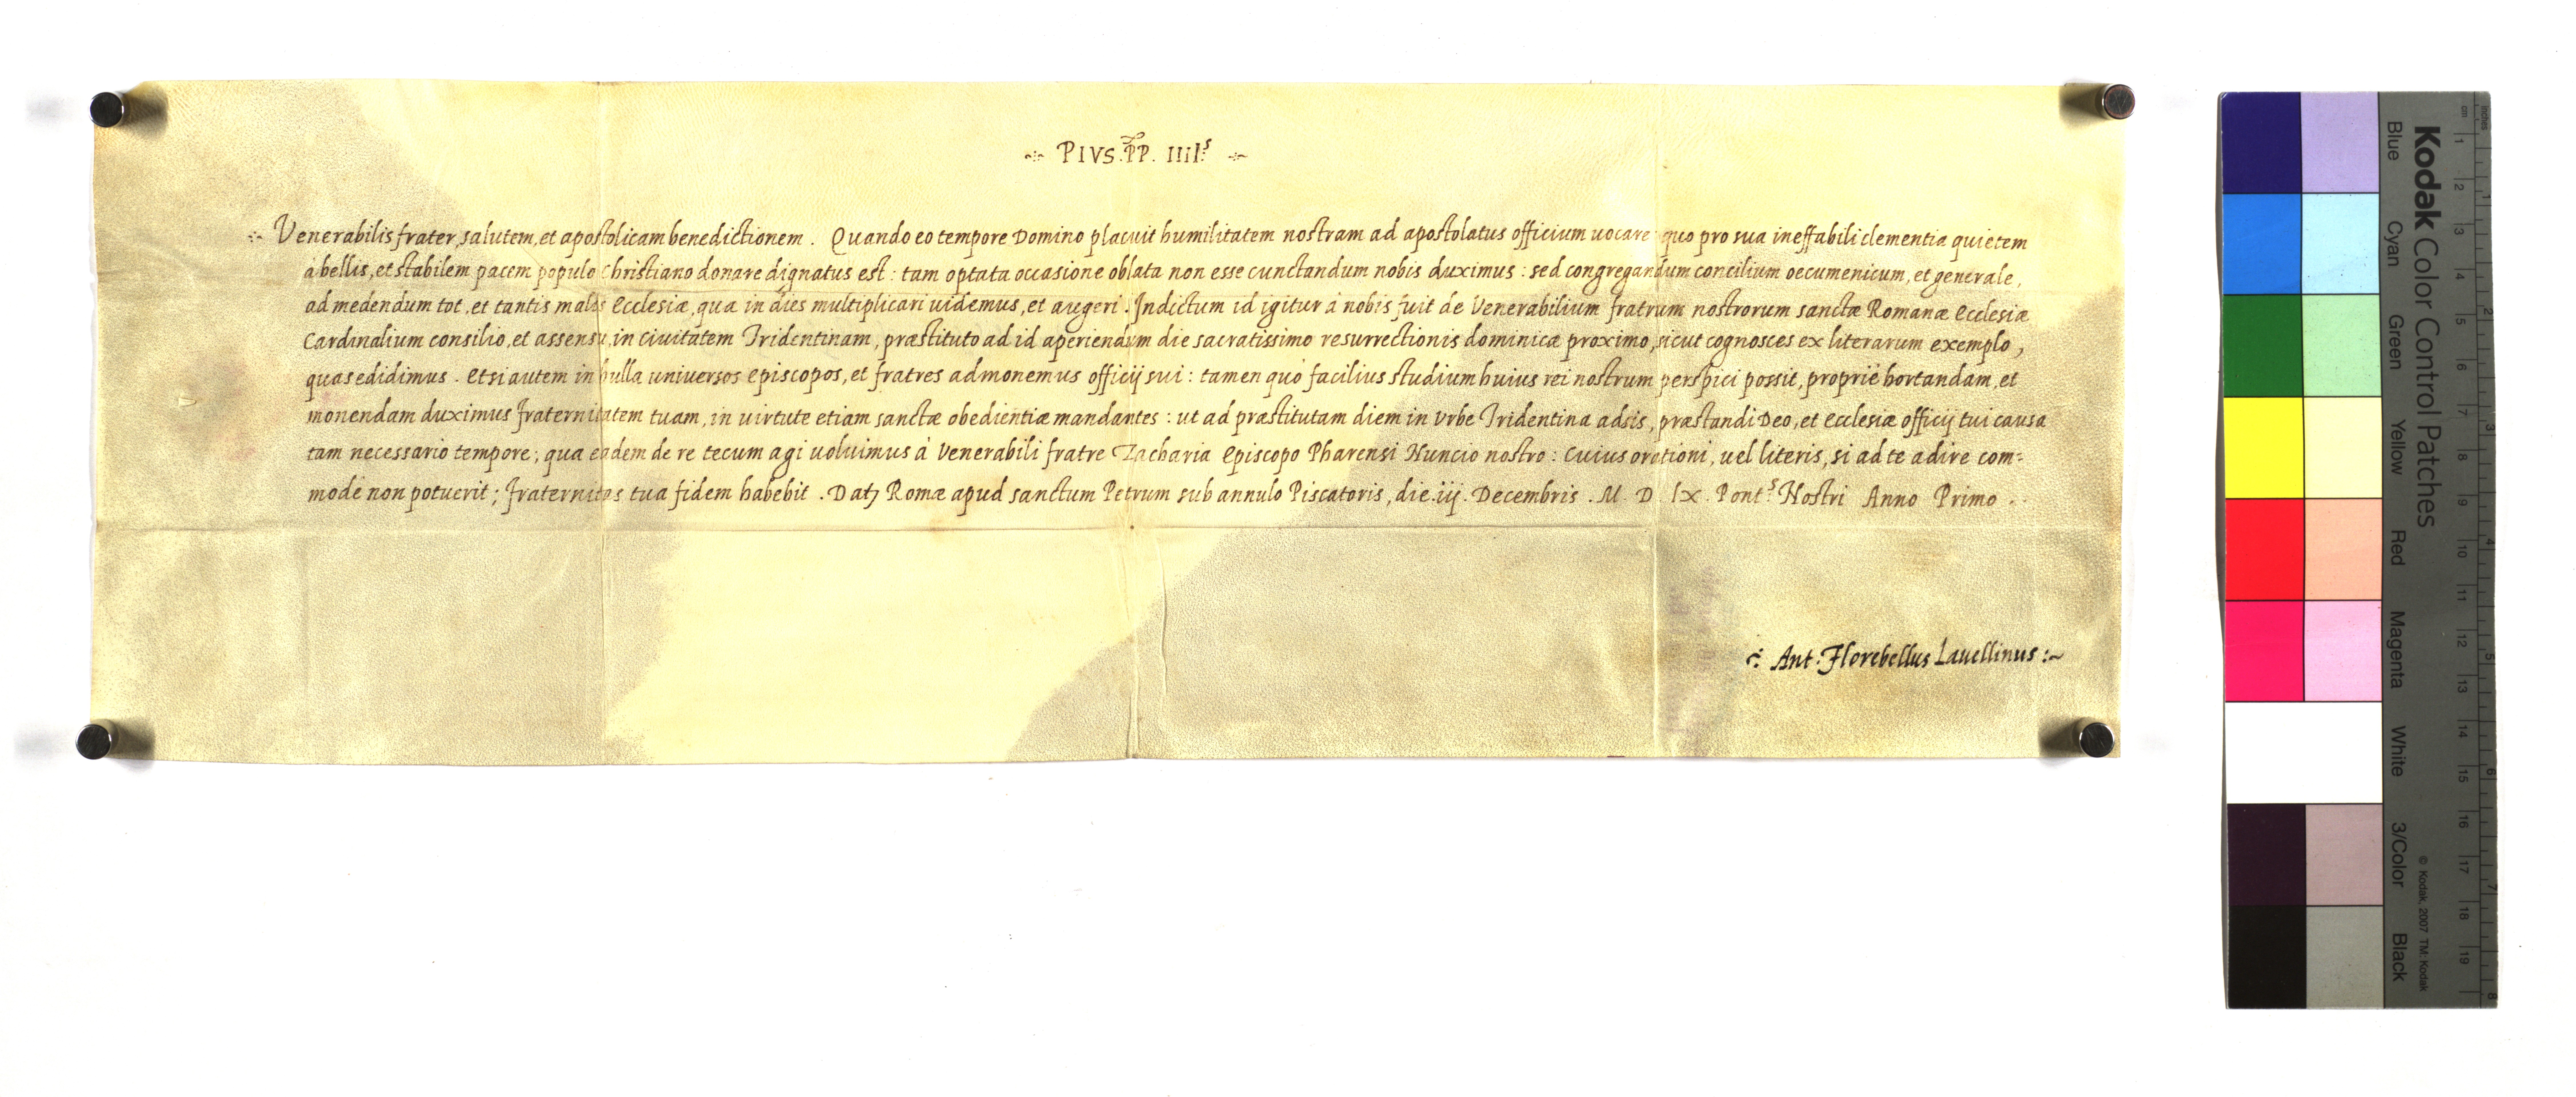 PIVS. PP. IIII.s
Venerabilis frater, salutem, et apostolicam benedictionem. Quando eo tempore Domino placuit humilitatem nostram ad apostolatus officium uocare quo pro sua ineffabili clementia quietem
à bellis, et stabilem pacem populo Christiano donare dignatus est: tam optata occasione oblata non esse cunctandum nobis duximus: sed congregandum concilium oecumenicum, et generale,
ad medendum tot, et tantis malis Ecclesiæ, quæ in dies multiplicari uidemus, et augeri. Indictum id igitur à nobis fuit de Venerabilium fratrum nostrorum sanctæ Romanæ Ecclesiæ
Cardinalium consilio, et assensu, in ciuitatem Tridentinam, præstituto ad id aperiendum die sacratissimo resurrectionis dominicæ proximo, sicut cognosces ex literarum exemplo,
quas edidimus. Etsi autem in bulla universos Episcopos, et fratres admonemus officij sui: tamen quò facilius studium huius rei nostrum perspici possit, propriè hortandam, et
monendam duximus fraternitatem tuam, in uirtute etiam sanctæ obedientiæ mandantes: ut ad præstitutam diem in Vrbe Tridentina adsis, præstandi Deo, et Ecclesiæ officij tui causa
tam necessario tempore; qua eadem de re tecum agi uoluimus à Venerabili fratre Zacharia Episcopo Pharensi Nuncio nostro: cuius orationi, uel literis, si ad te adire com-
modè non potuerit; fraternitas tua fidem habebit. Datȝ Romæ apud sanctum Petrum sub annulo Piscatoris, die. iij. Decembris. M. D. lx. Pont.s Nostri Anno Primo.
Ant. Florebellus Lauellinus:~
Kodak Color Control Patches
Blue Cyan Green Yellow Red Magenta White 3/Color Black
© Kodak, 2007 TM: Kodak
cm 1 2 3 4 5 6 7 8 9 10 11 12 13 14 15 16 17 18 19
inches 1 2 3 4 5 6 7 8